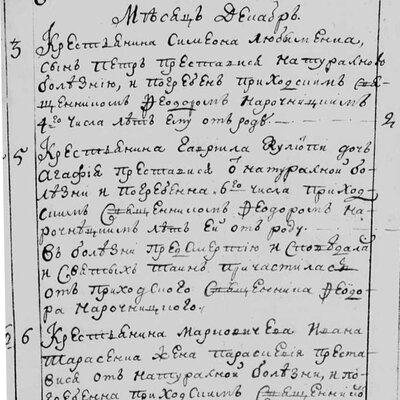 Мѣсецъ Декабрь.
3 Крестьянина Симеона Любыменка,
сынъ Петръ преставися натуралною
болѣзнію, и погребенъ приходскимъ Свя-
щенникомъ Ѳеодоромъ Нарочницкимъ
4го числа лѣтъ ему отъ роду. 2
5 Крестьянина Гаврила Кулѣпи дочь
Агафія преставися о натуралной бо-
лѣзни и погребенна. 6го числа приход-
скимъ Священникомъ Ѳеодоромъ На-
рочнѣцкимъ лѣтъ ей отъ роду.
въ болѣзни предсмертію и сповѣдала
и Святыхъ Таинъ причастилася
отъ приходского Священника Ѳеодо-
ра Нарочницкого.
6 Крестьянина Ивана
Тарасенка жена Параскевія преста-
вися отъ натуралной болѣзни, и по-
гребенна приходскимъ Священнико